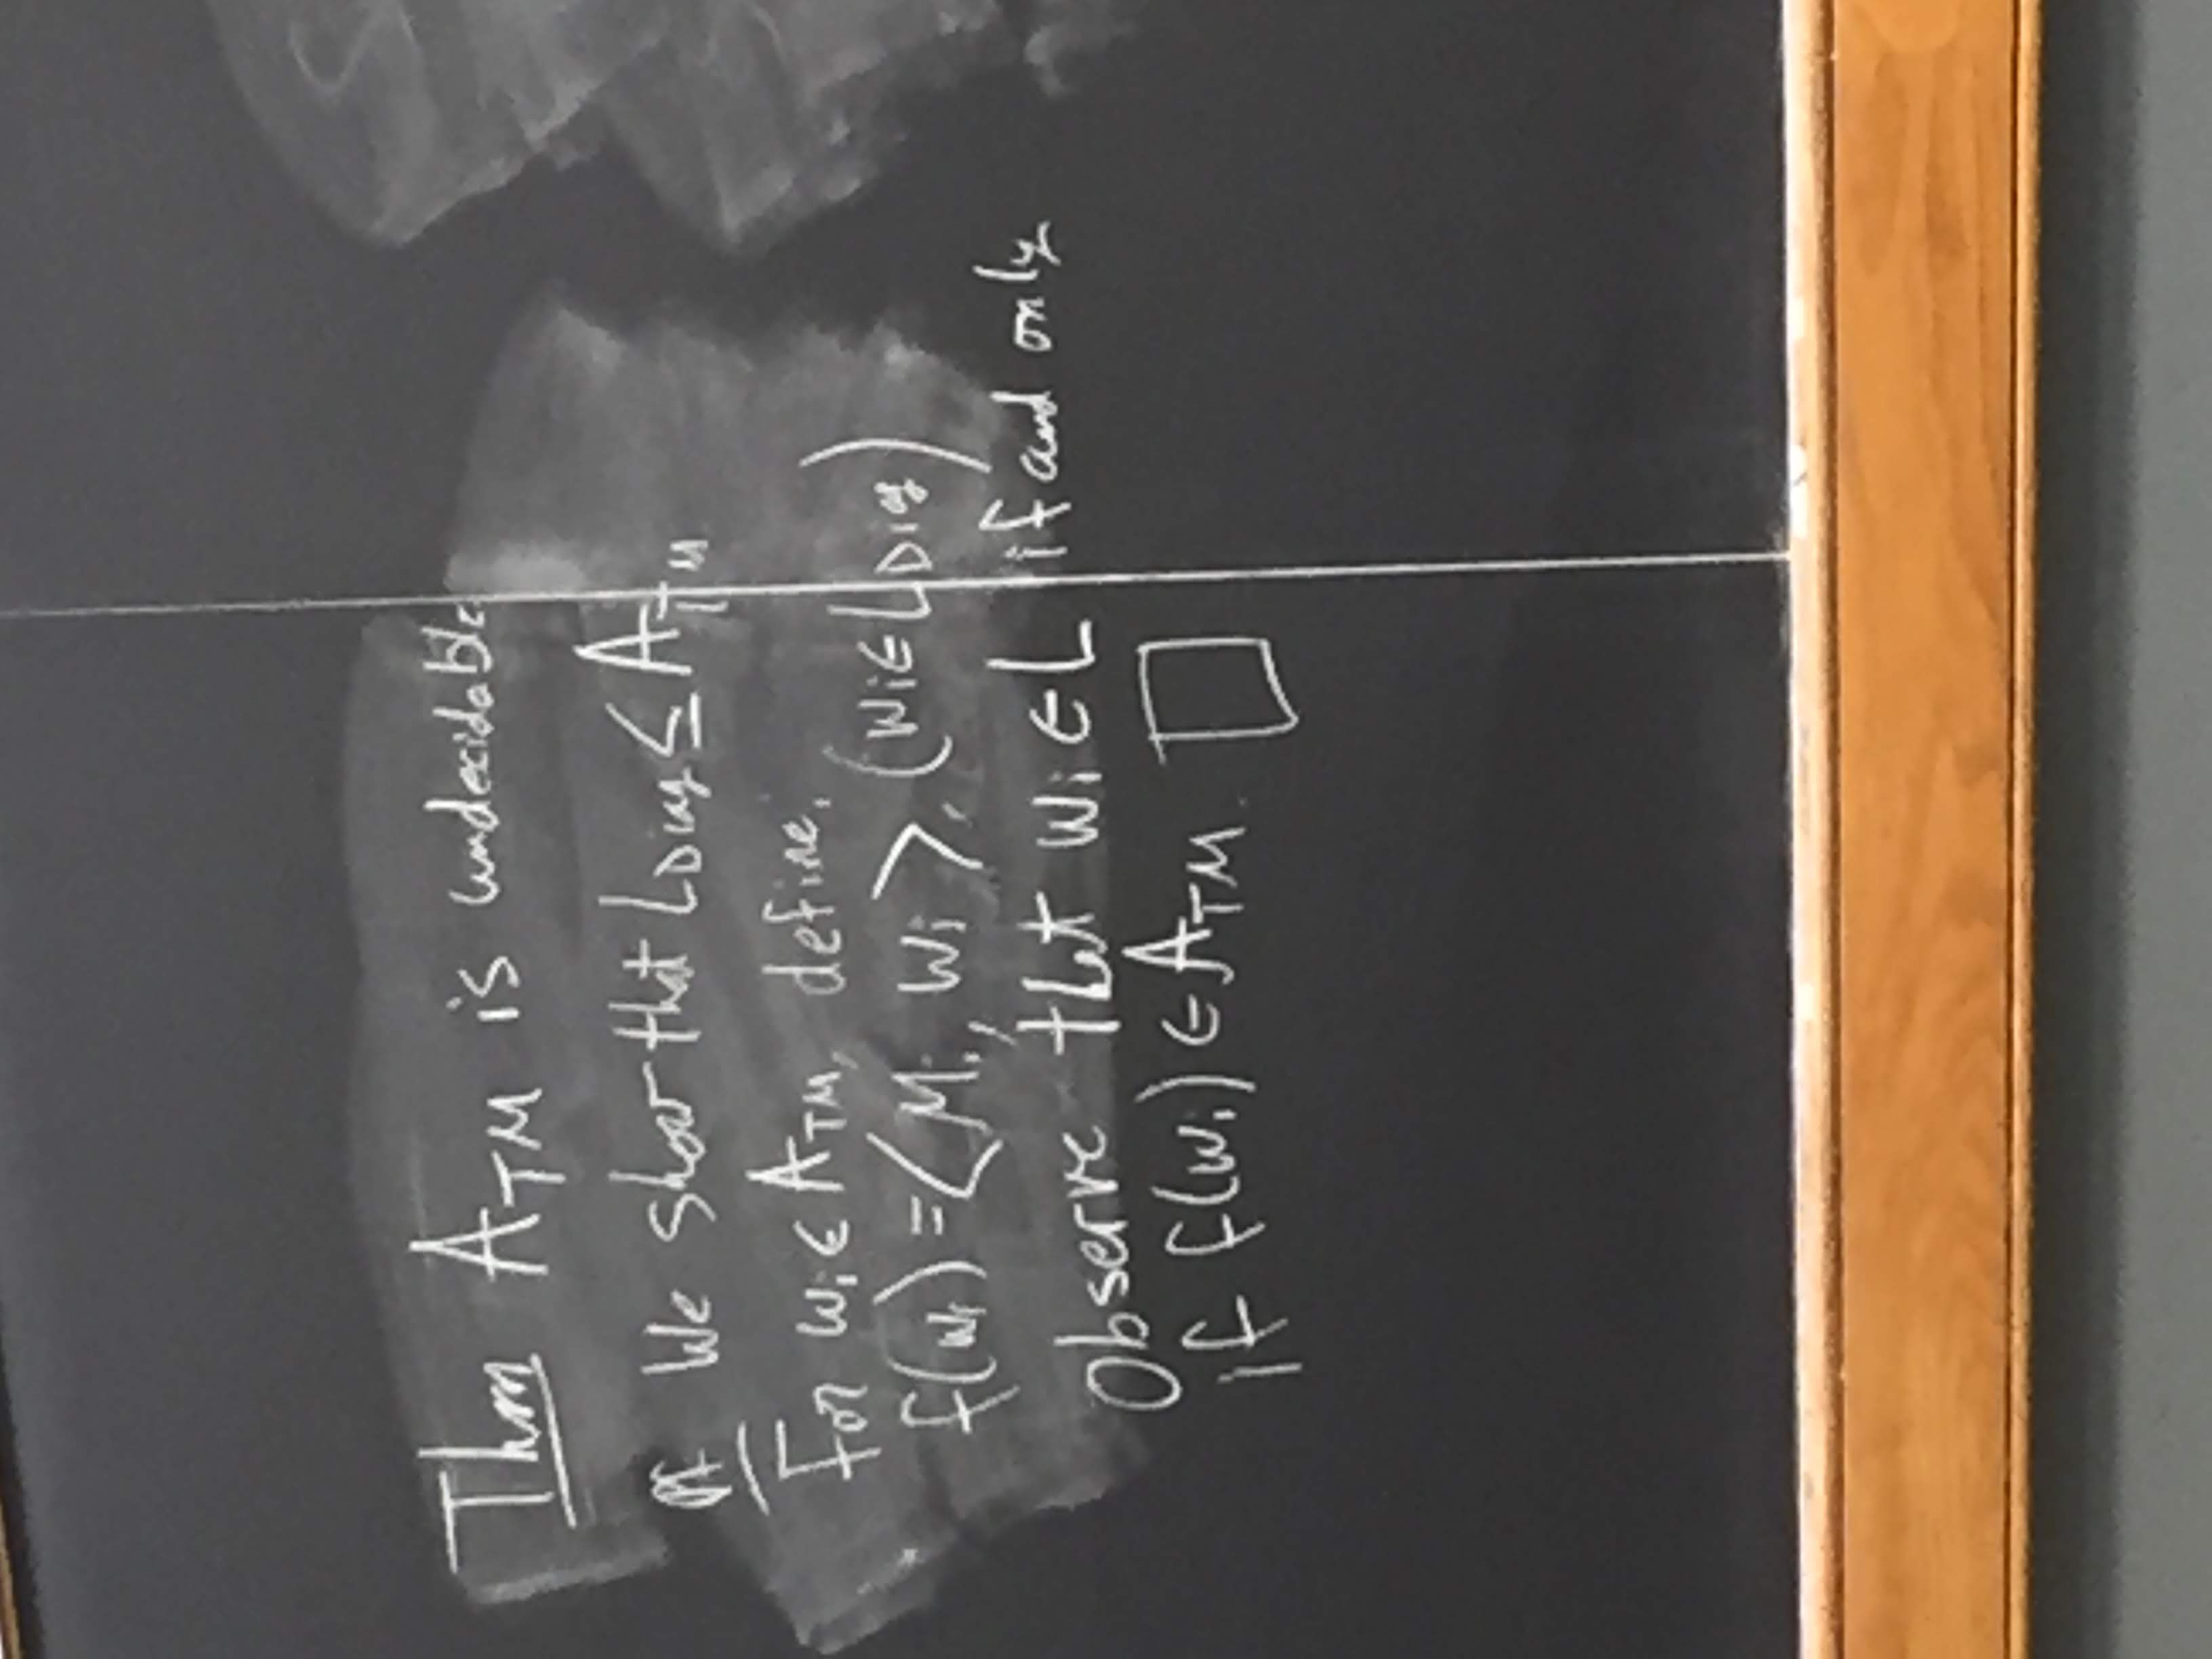 Thm A_TM is undecidable.
Pf We show that L_Diag ≤ A_TM
For w_i ∈ A_TM, define.
f(w_i) = ⟨M_i, w_i⟩. (w_i ∈ L_Diag)
Observe that w_i ∈ L if and only
if f(w_i) ∈ A_TM. □